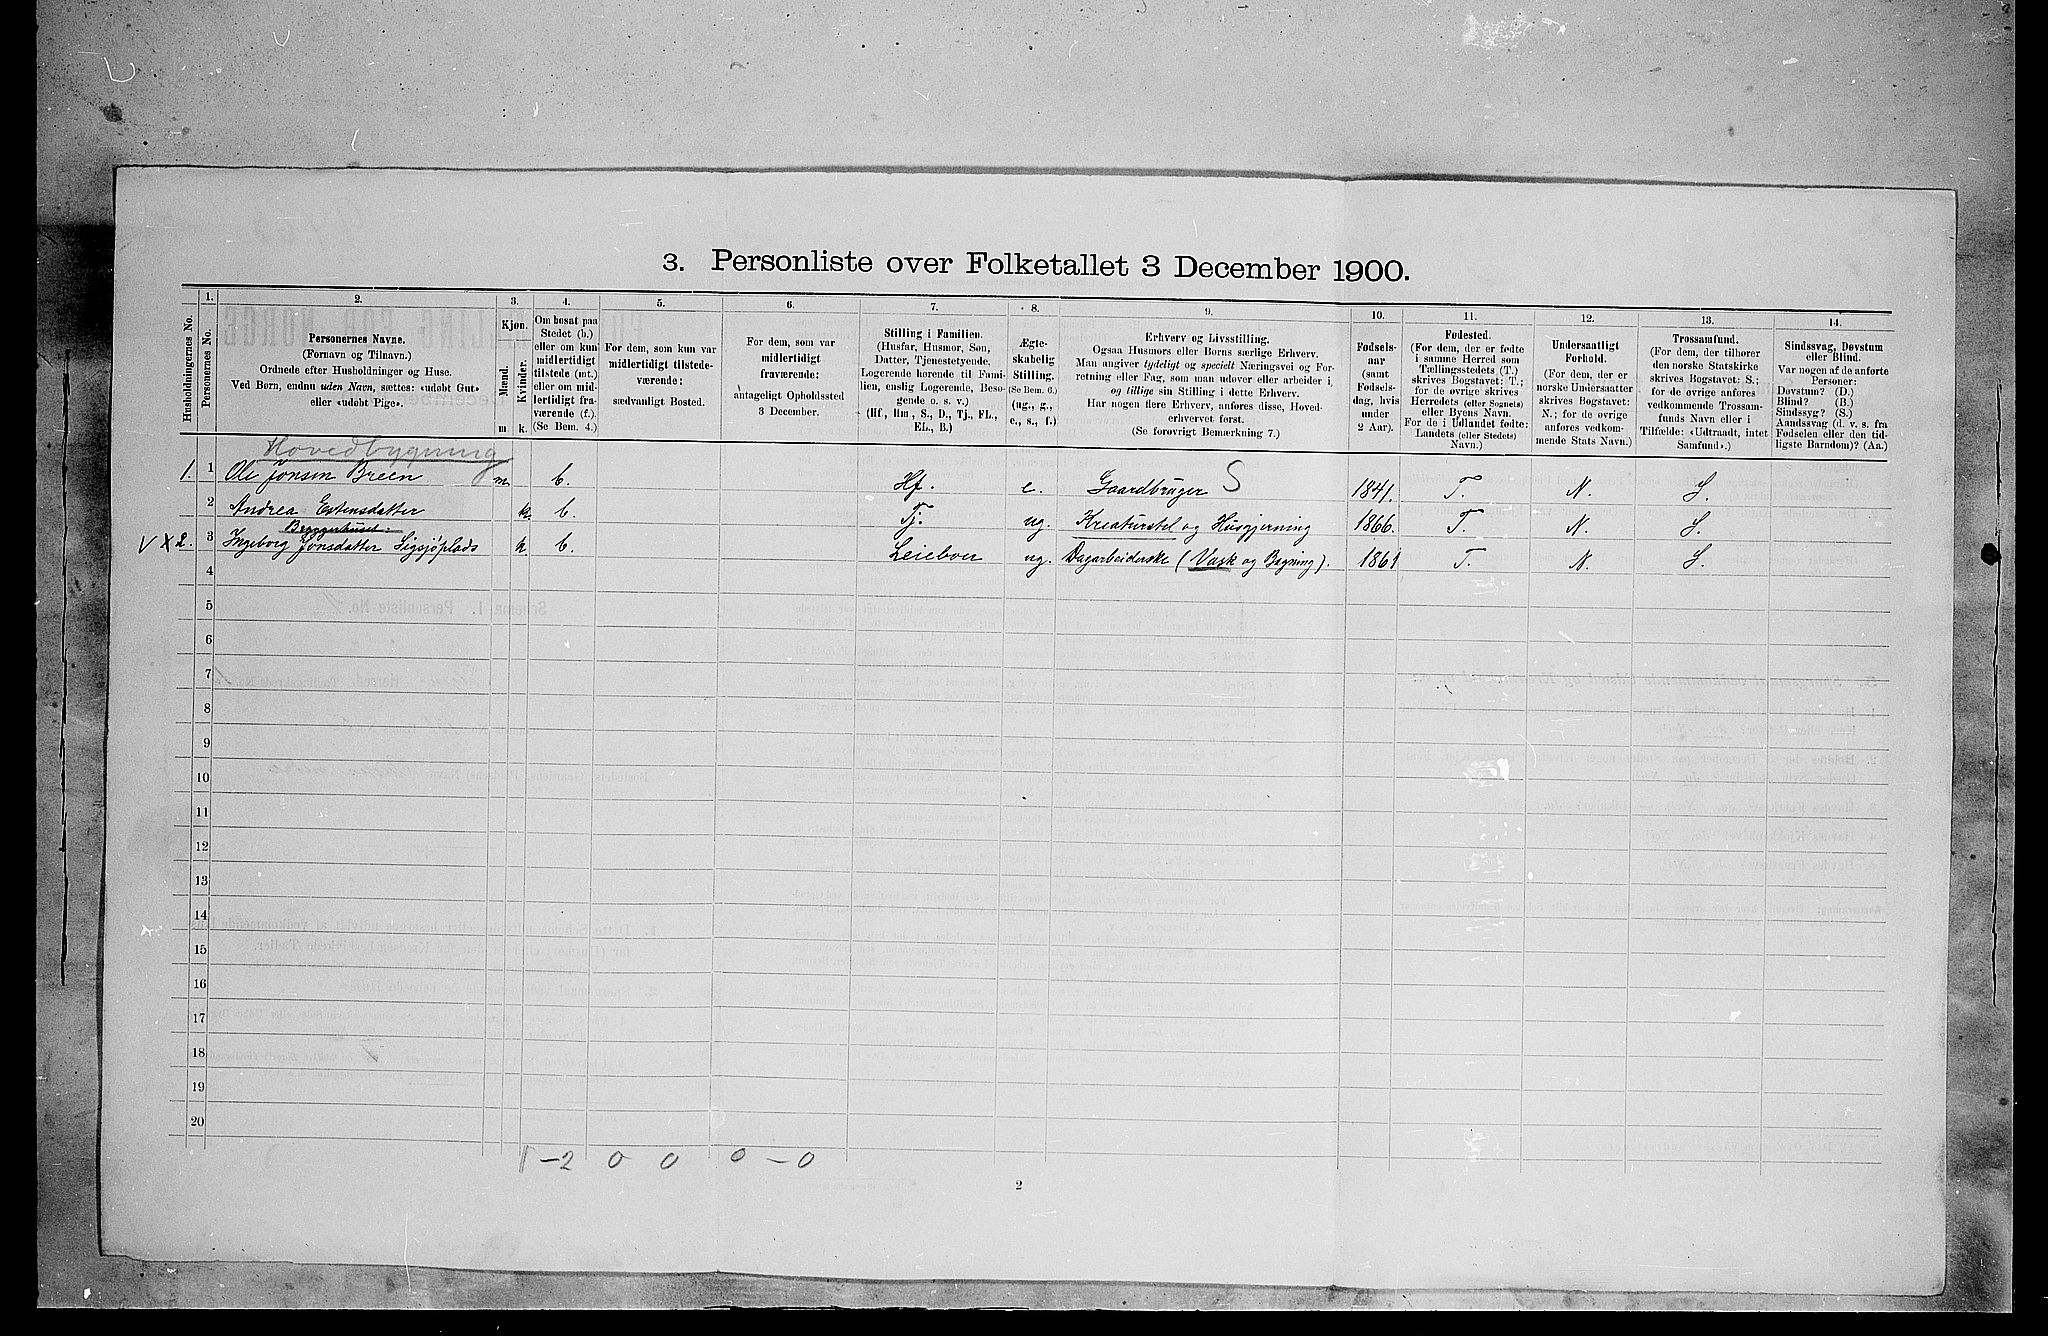 3. Personliste over Folketallet 3 December 1900.
Husholdningernes No.
1.
Personernes No.
2.
Personernes Navne.
(Fornavn og Tilnavn.)
Ordnede efter Husholdninger og Huse.
Ved Børn, endnu uden Navn, sættes: «udøbt Gut»
eller «udøbt Pige».
3.
Kjøn.
Mænd.
Kvinder.
m k.
4.
Om bosat paa
Stedet (b.)
eller om kun
midlertidigt
tilstede (mt.)
eller om mid-
lertidigt fra-
værende (f.).
(Se Bem. 4.)
5.
For dem, som kun var
midlertidigt tilstede-
værende:
sædvanligt Bosted.
6.
For dem, som var
midlertidigt
fraværende:
antageligt Opholdssted
3 December.
7.
Stilling i Familien.
(Husfar, Husmor, Søn,
Datter, Tjenestetyende,
Logerende hørende til Fami-
lien, enslig Logerende, Besø-
gende o. s. v.)
(Hf, Hm, S., D., Tj., FL.,
EL., B.)
8.
Ægte-
skabelig
Stilling.
(Se Bem. 6.)
(ug., g.,
e., s., f.)
9.
Erhverv og Livsstilling.
Ogsaa Husmors eller Børns særlige Erhverv.
Man angiver tydeligt og specielt Næringsvei og For-
retning eller Fag, som man udøver eller arbeider i,
og tillige sin Stilling i dette Erhverv.
Har nogen flere Erhverv, anføres disse, Hoved-
erhvervet først.
(Se forøvrigt Bemærkning 7.)
10.
Fødsels-
aar
(samt
Fødsels-
dag, hvis
under
2 Aar).
11.
Fødested.
(For dem, der er fødte
i samme Herred som
Tællingsstedets (T.)
skrives Bogstavet: T.;
for de øvrige skrives
Herredets (eller Sognets)
eller Byens Navn.
For de i Udlandet fødte:
Landets (eller Stedets)
Navn.)
12.
Undersaatligt
Forhold.
(For dem, der er
norske Undersaatter
skrives Bogstavet:
N.; for de øvrige
anføres vedkom-
mende Stats Navn.)
13.
Trossamfund.
(For dem, der tilhører
den norske Statskirke
skrives Bogstavet: S.;
for de øvrige anføres
vedkommende Trossam-
funds Navn eller i
Tilfælde: «Udtraadt, intet
Samfund».)
14.
Sindssvag, Døvstum
eller Blind.
Var nogen af de anførte
Personer:
Døvstum? (D.)
Blind? (B.)
Sindssyg? (S.)
Aandssvag (d. v. s. fra
Fødselen eller den tid-
ligste Barndom)? (Aa.)
Hovedbygning
1. 1 Ole Jonsen Breen m b. Hf. e. Gaardbruger S 1841. T. N. S.
2 Andrea Estensdatter k. b. Tj. ug. Kreaturstel og Husgjerning 1866. T. N. S.
Bryggerhuset:
V X 2. 3 Ingeborg Jonsdatter Sigsjøplads k b. Leieboer ug. Dagarbeiderske (Vask og Bagning). 1861 T. N. S.
4
5
6
7
8
9
10
11
12
13
14
15
16
17
18
19
20
1 - 2 0 0 0 - 0
2